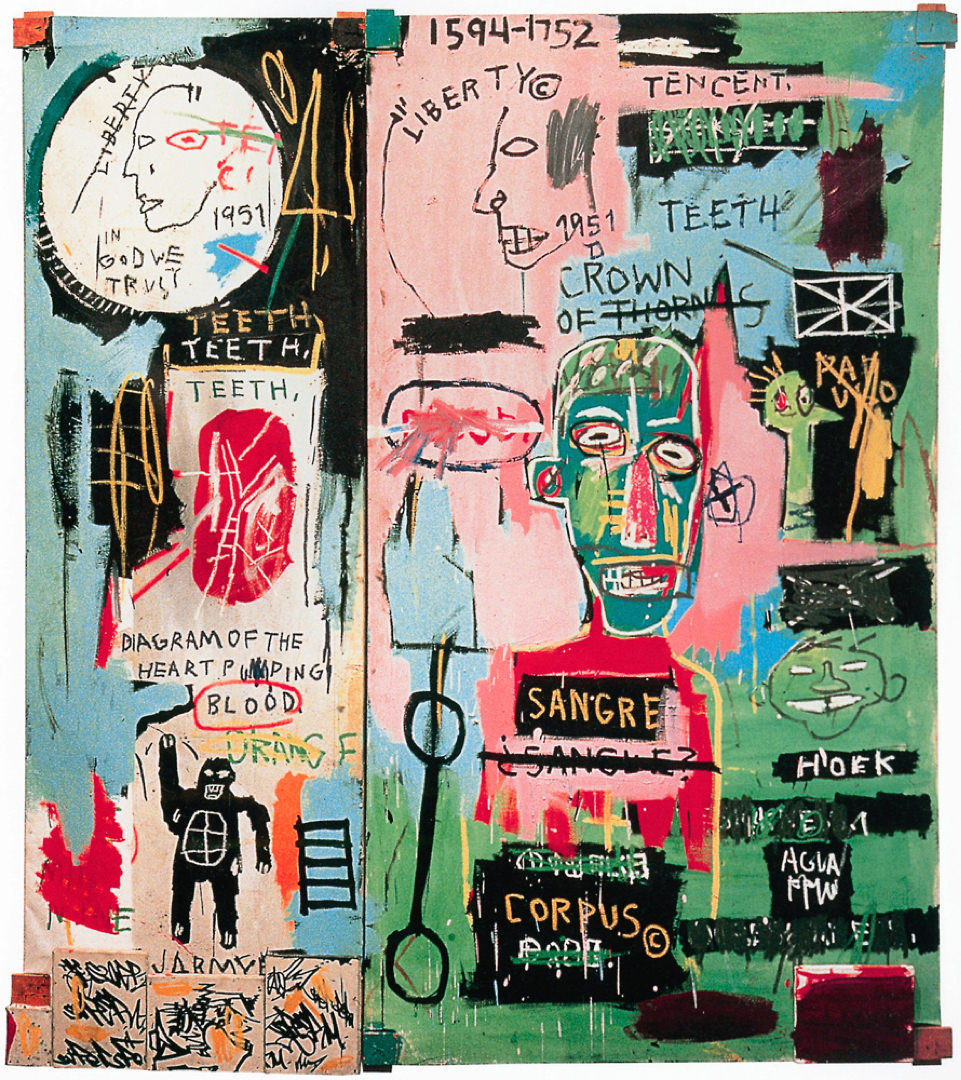 LIBERTY
1951
IN
GOD WE
TRUST
TEETH
TEETH,
TEETH,
DIAGRAM OF THE
HEART PUMPING
BLOOD
ORANGE
1594-1752
"LIBERTY©
1951
D
TENCENT.
TEETH
CROWN
OF THORNS
SANGRE
¿SANGUE?
CORPUS©
HOEK
AGUA